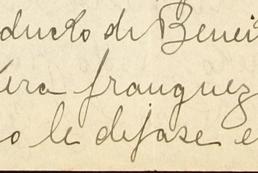 ducto de Benei
era franquez
o le dejase e